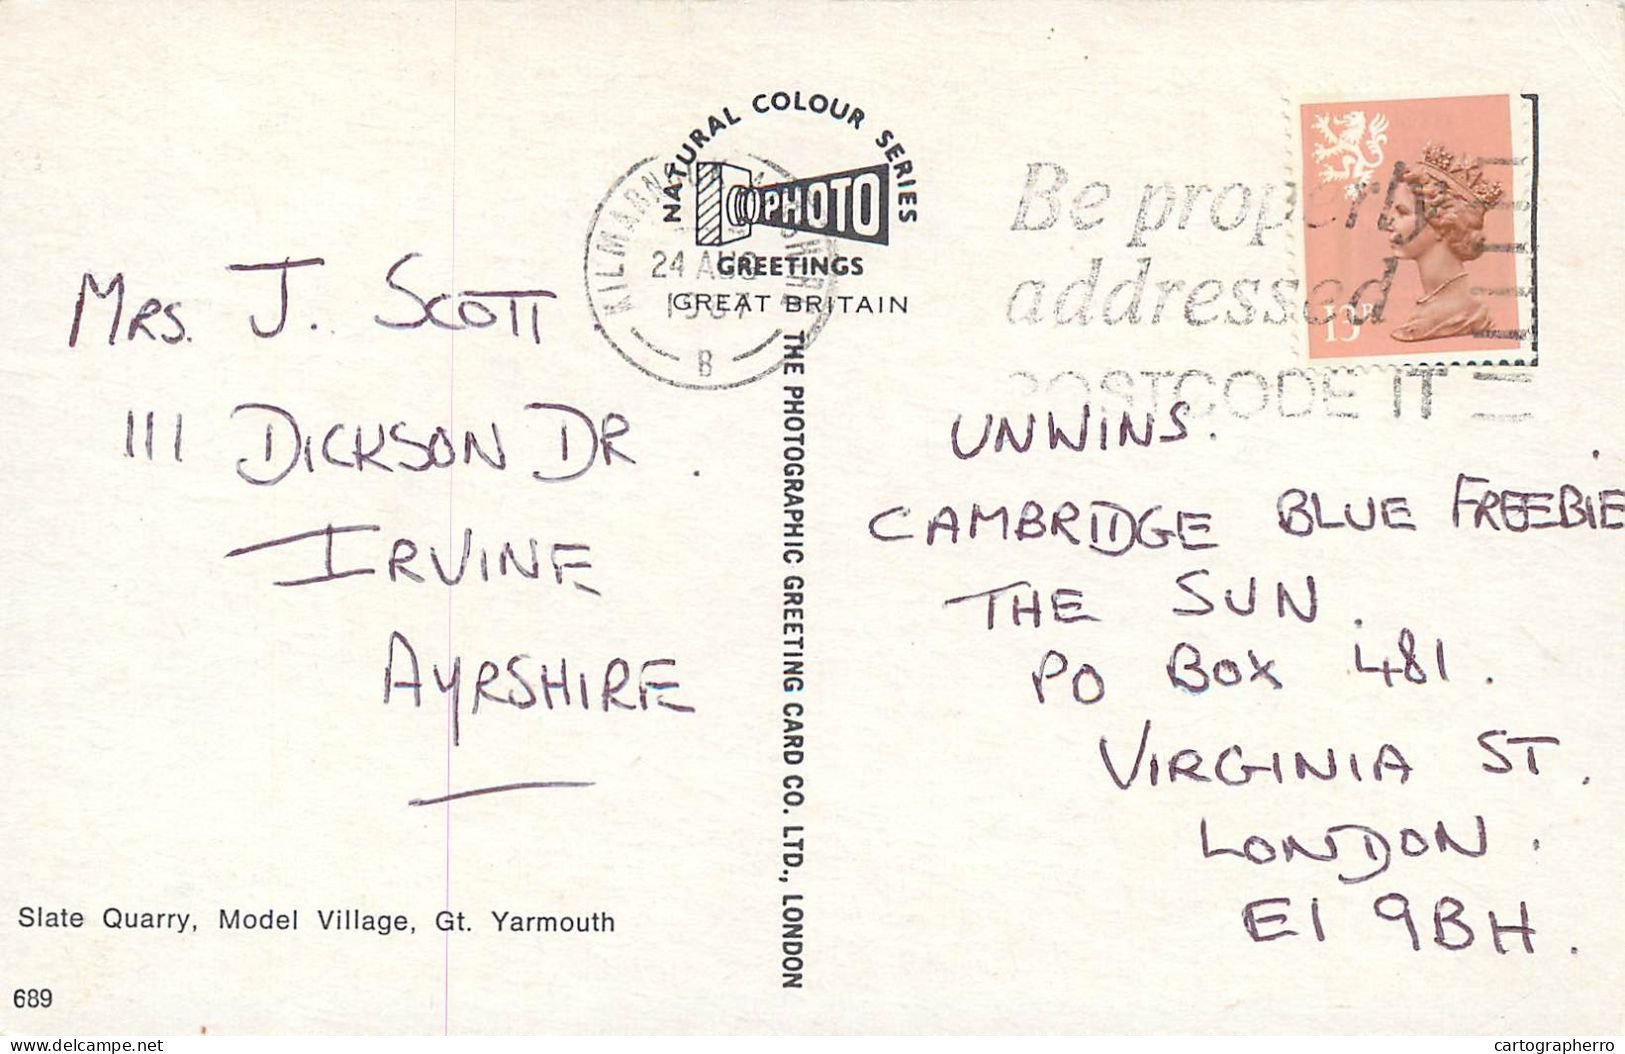 NATURAL COLOUR SERIES
PHOTO
GREETINGS
GREAT BRITAIN
24 AUG
1987
B
Be properly
addressed
POSTCODE IT
13P
MRS. J. SCOTT
111 DICKSON DR.
IRVINE
AYRSHIRE
THE PHOTOGRAPHIC GREETING CARD CO. LTD., LONDON
UNWINS.
CAMBRIDGE BLUE FREEBIE
THE SUN.
PO BOX 481.
VIRGINIA ST.
LONDON.
E1 9BH.
Slate Quarry, Model Village, Gt. Yarmouth
689
delcampe.net
cartographerro